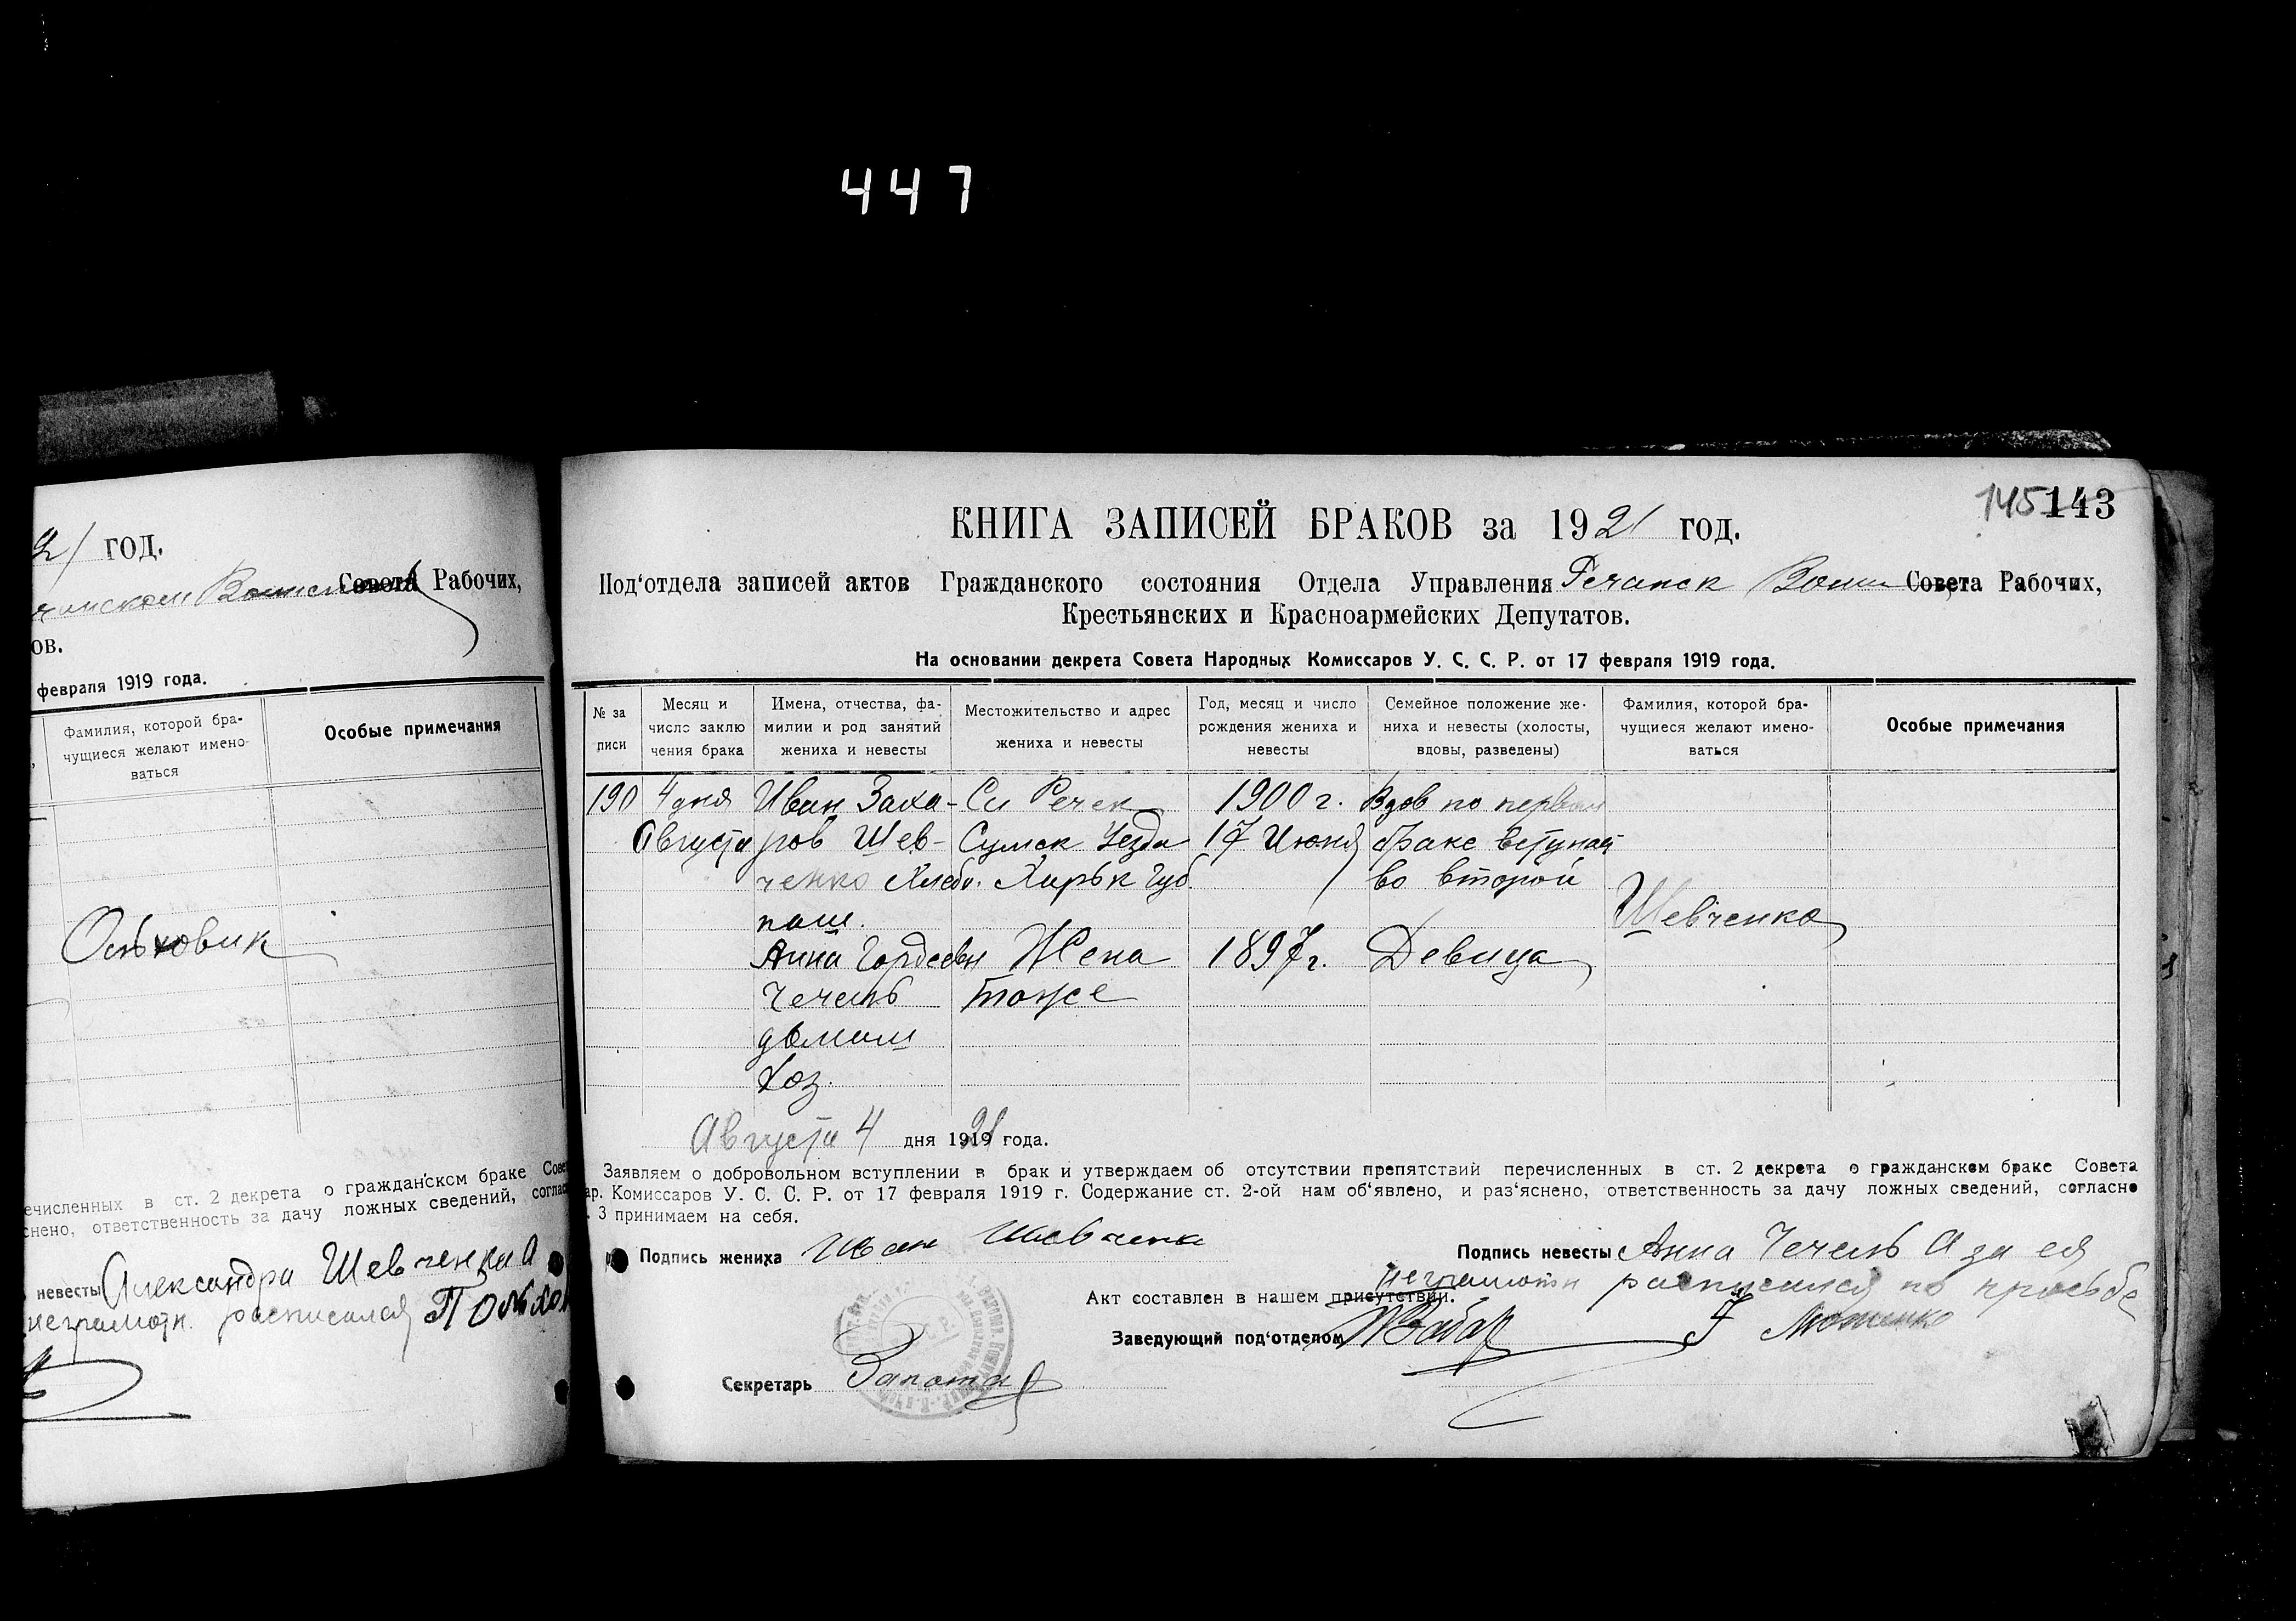 447
2/ год.
Совета Рабочих,
ов.
февраля 1919 года.
Фамилия, которой бра-
чущиеся желают имено-
ваться
Особые примечания
Оньховик
ечисленных в ст. 2 декрета о гражданском браке Сове
снено, ответственность за дачу ложных сведений, соглас
невесты Александра Шевченко А
неграмотн. расписался
145 143
КНИГА ЗАПИСЕЙ БРАКОВ за 1921 год.
Под‘отдела записей актов Гражданского состояния Отдела Управления Речанск Волис Совета Рабочих,
Крестьянских и Красноармейских Депутатов.
На основании декрета Совета Народных Комиссаров У. С. С. Р. от 17 февраля 1919 года.
№ за
писи
Месяц и
число заклю
чения брака
Имена, отчества, фа-
милии и род занятий
жениха и невесты
Местожительство и адрес
жениха и невесты
Год, месяц и число
рождения жениха и
невесты
Семейное положение же-
ниха и невесты (холосты,
вдовы, разведены)
Фамилия, которой бра-
чущиеся желают имено-
ваться
Особые примечания
190 4 дня Иван Заха- Сл Речек 1900 г. Вдов по первом
Августа ров Шев- Сумск Уезда 17 Июня браке вступает
ченко Хлебо. Харьк Губ. во второй
паш. Шевченко
Анна Гордеевн Жена 1897 г. Девица
Чечель тоже
домаш
хоз.
Августа 4 дня 1921 года.
Заявляем о добровольном вступлении в брак и утверждаем об отсутствии препятствий перечисленных в ст. 2 декрета о гражданском браке Совета
ар. Комиссаров У. С. С. Р. от 17 февраля 1919 г. Содержание ст. 2-ой нам об‘явлено, и раз‘яснено, ответственность за дачу ложных сведений, согласно
. 3 принимаем на себя.
Подпись жениха Иван Шевченко
Подпись невесты Анна Чечель А за ея
неграмотн расписался по просьбе
Акт составлен в нашем присутствии.
Заведующий под‘отделом
Секретарь